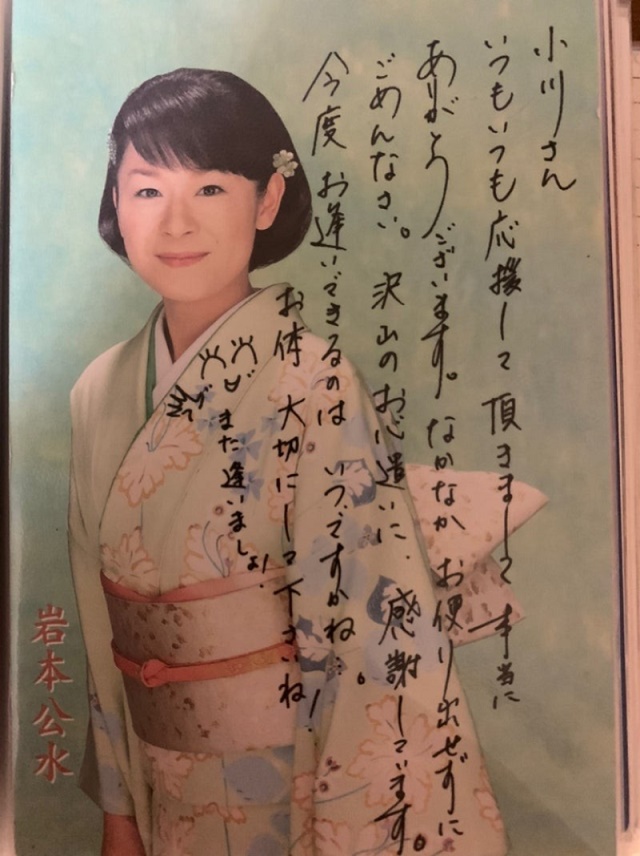 小川さん
いつもいつも応援して頂きまして本当に
ありがとうございます。なかなかお便り出せずに
ごめんなさい。沢山のお心遣いに、感謝しています。
今度お逢いできるのは いつですかね…！
お体 大切にして下さいね。
また逢いましょ！
岩本公水